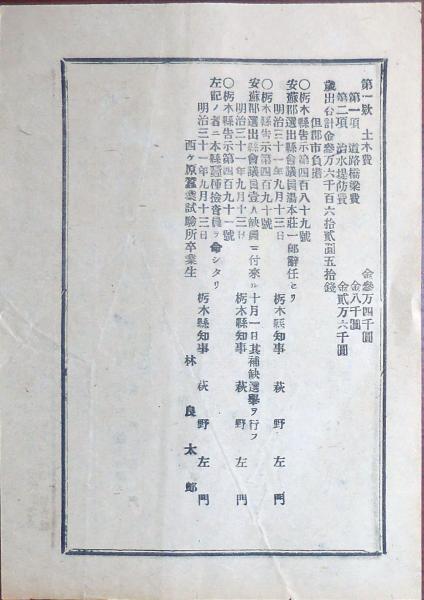 第一款 土木費 金參万四千圓
第一項 道路橋梁費 金八千圓
第二項 治水堤防費 金貳万六千圓
歳出合計金參万六千百六拾貳圓五拾錢
但郡市負擔
〇栃木縣告示第四百八十九號
安蘇郡選出縣會議員湯本莊一郎辭任セリ
明治三十一年九月十三日 栃木縣知事 萩野左門
〇栃木縣告示第四百九十號
安蘇郡選出縣會議員壹人缺員ニ付來ル十月一日其補缺選擧ヲ行フ
明治三十一年九月十三日 栃木縣知事 萩野左門
〇栃木縣告示第四百九十一號
左記ノ者ニ本縣蠶種檢査員ヲ命シタリ
明治三十一年九月十三日 栃木縣知事 萩野左門
西ヶ原蠶業試驗所卒業生 林良太郎